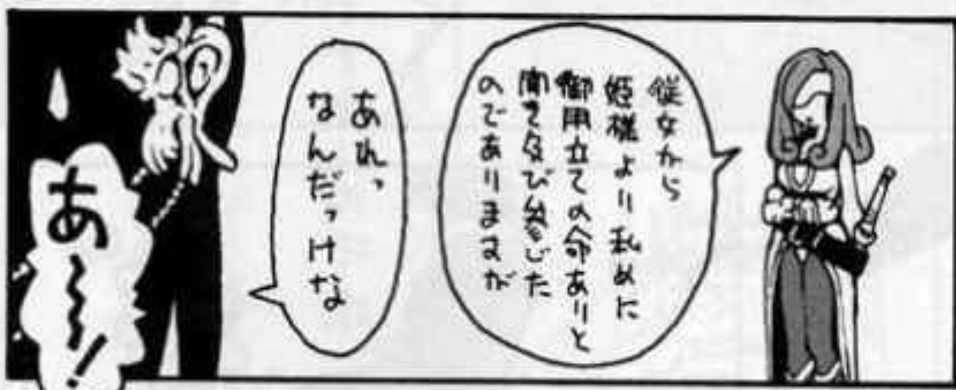 従女から
姫様より私めに
御用立ての命ありと
聞き及び参じた
のでありますが
あれっ
なんだっけな
あ〜〜!